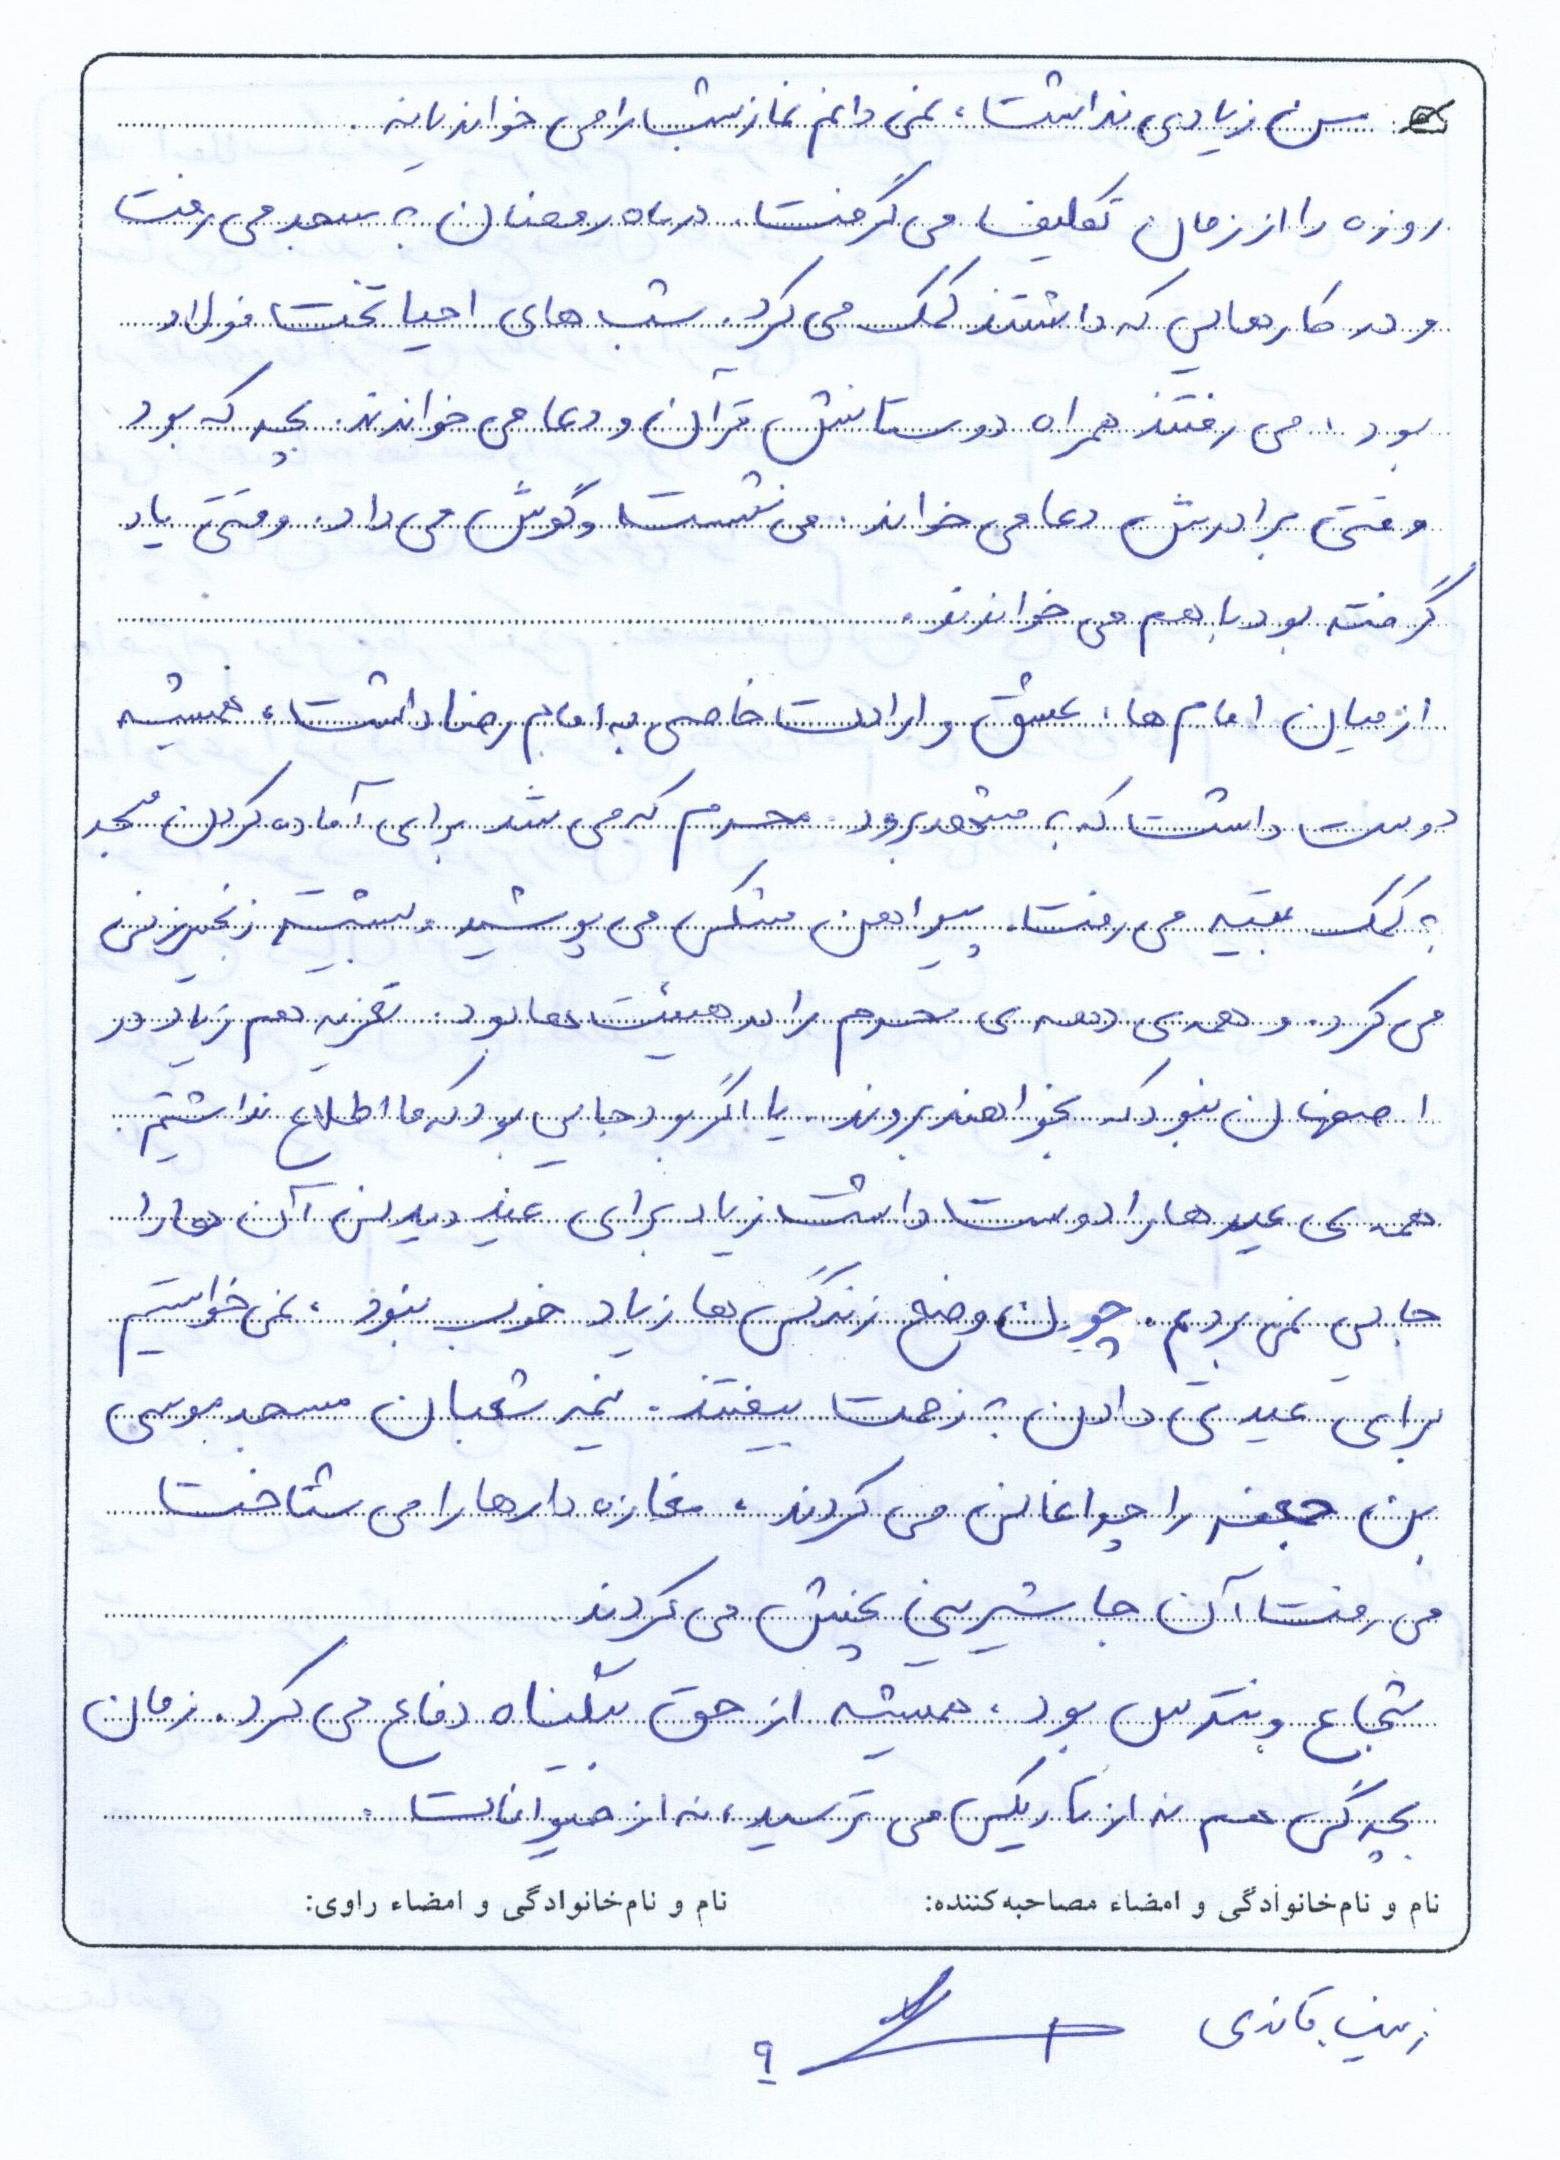 سن زیادی نداشت، نمی دانم نماز شب را می خواند یا نه.
روزه را از زمان تکلیف می گرفت. در ماه رمضان به مسجد می رفت
و در کارهایی که داشتند کمک می کرد. شب های احیا تخت فولاد
بود، می رفتند همراه دوستانش قرآن و دعا می خواندند. بچه که بود
وقتی برادرش دعا می خواند. می نشست و گوش می داد. وقتی یاد
گرفته بود با هم می خواندند.
از میان امام ها، عشق و ارادت خاصی به امام رضا داشت، همیشه
دوست داشت که به مشهد برود. محرم که می شد برای آماده کردن مسجد
به کمک بقیه می رفت. پیراهن مشکی می پوشید و همیشه زنجیرزنی
می کرد. و همه ی دهه ی محرم را در هیئت ها بود. تعزیه هم زیاد در
اصفهان نبود که بخواهند بروند. یا اگر بود جایی بود که ما اطلاع نداشتیم.
همه ی عیدها را دوست داشت زیاد برای عید دیدنی آن ها را
جایی نمی بردیم. چون وضع زندگی ها زیاد خوب نبود، نمی خواستیم
برای عیدی دادن به زحمت بیفتند. نیمه شعبان مسجد موسی
بن جعفر را چراغانی می کردند، مغازه دارها را می شناخت
می رفت آن جا شیرینی پخش می کردند
شجاع و نترس بود، همیشه از حق بیگناه دفاع می کرد. زمان
بچه گی هم نه از تاریکی می ترسید، نه از حیوانات.
نام و نام‌خانوادگی و امضاء مصاحبه‌کننده: نام و نام‌خانوادگی و امضاء راوی:
زینب قائدی
۹